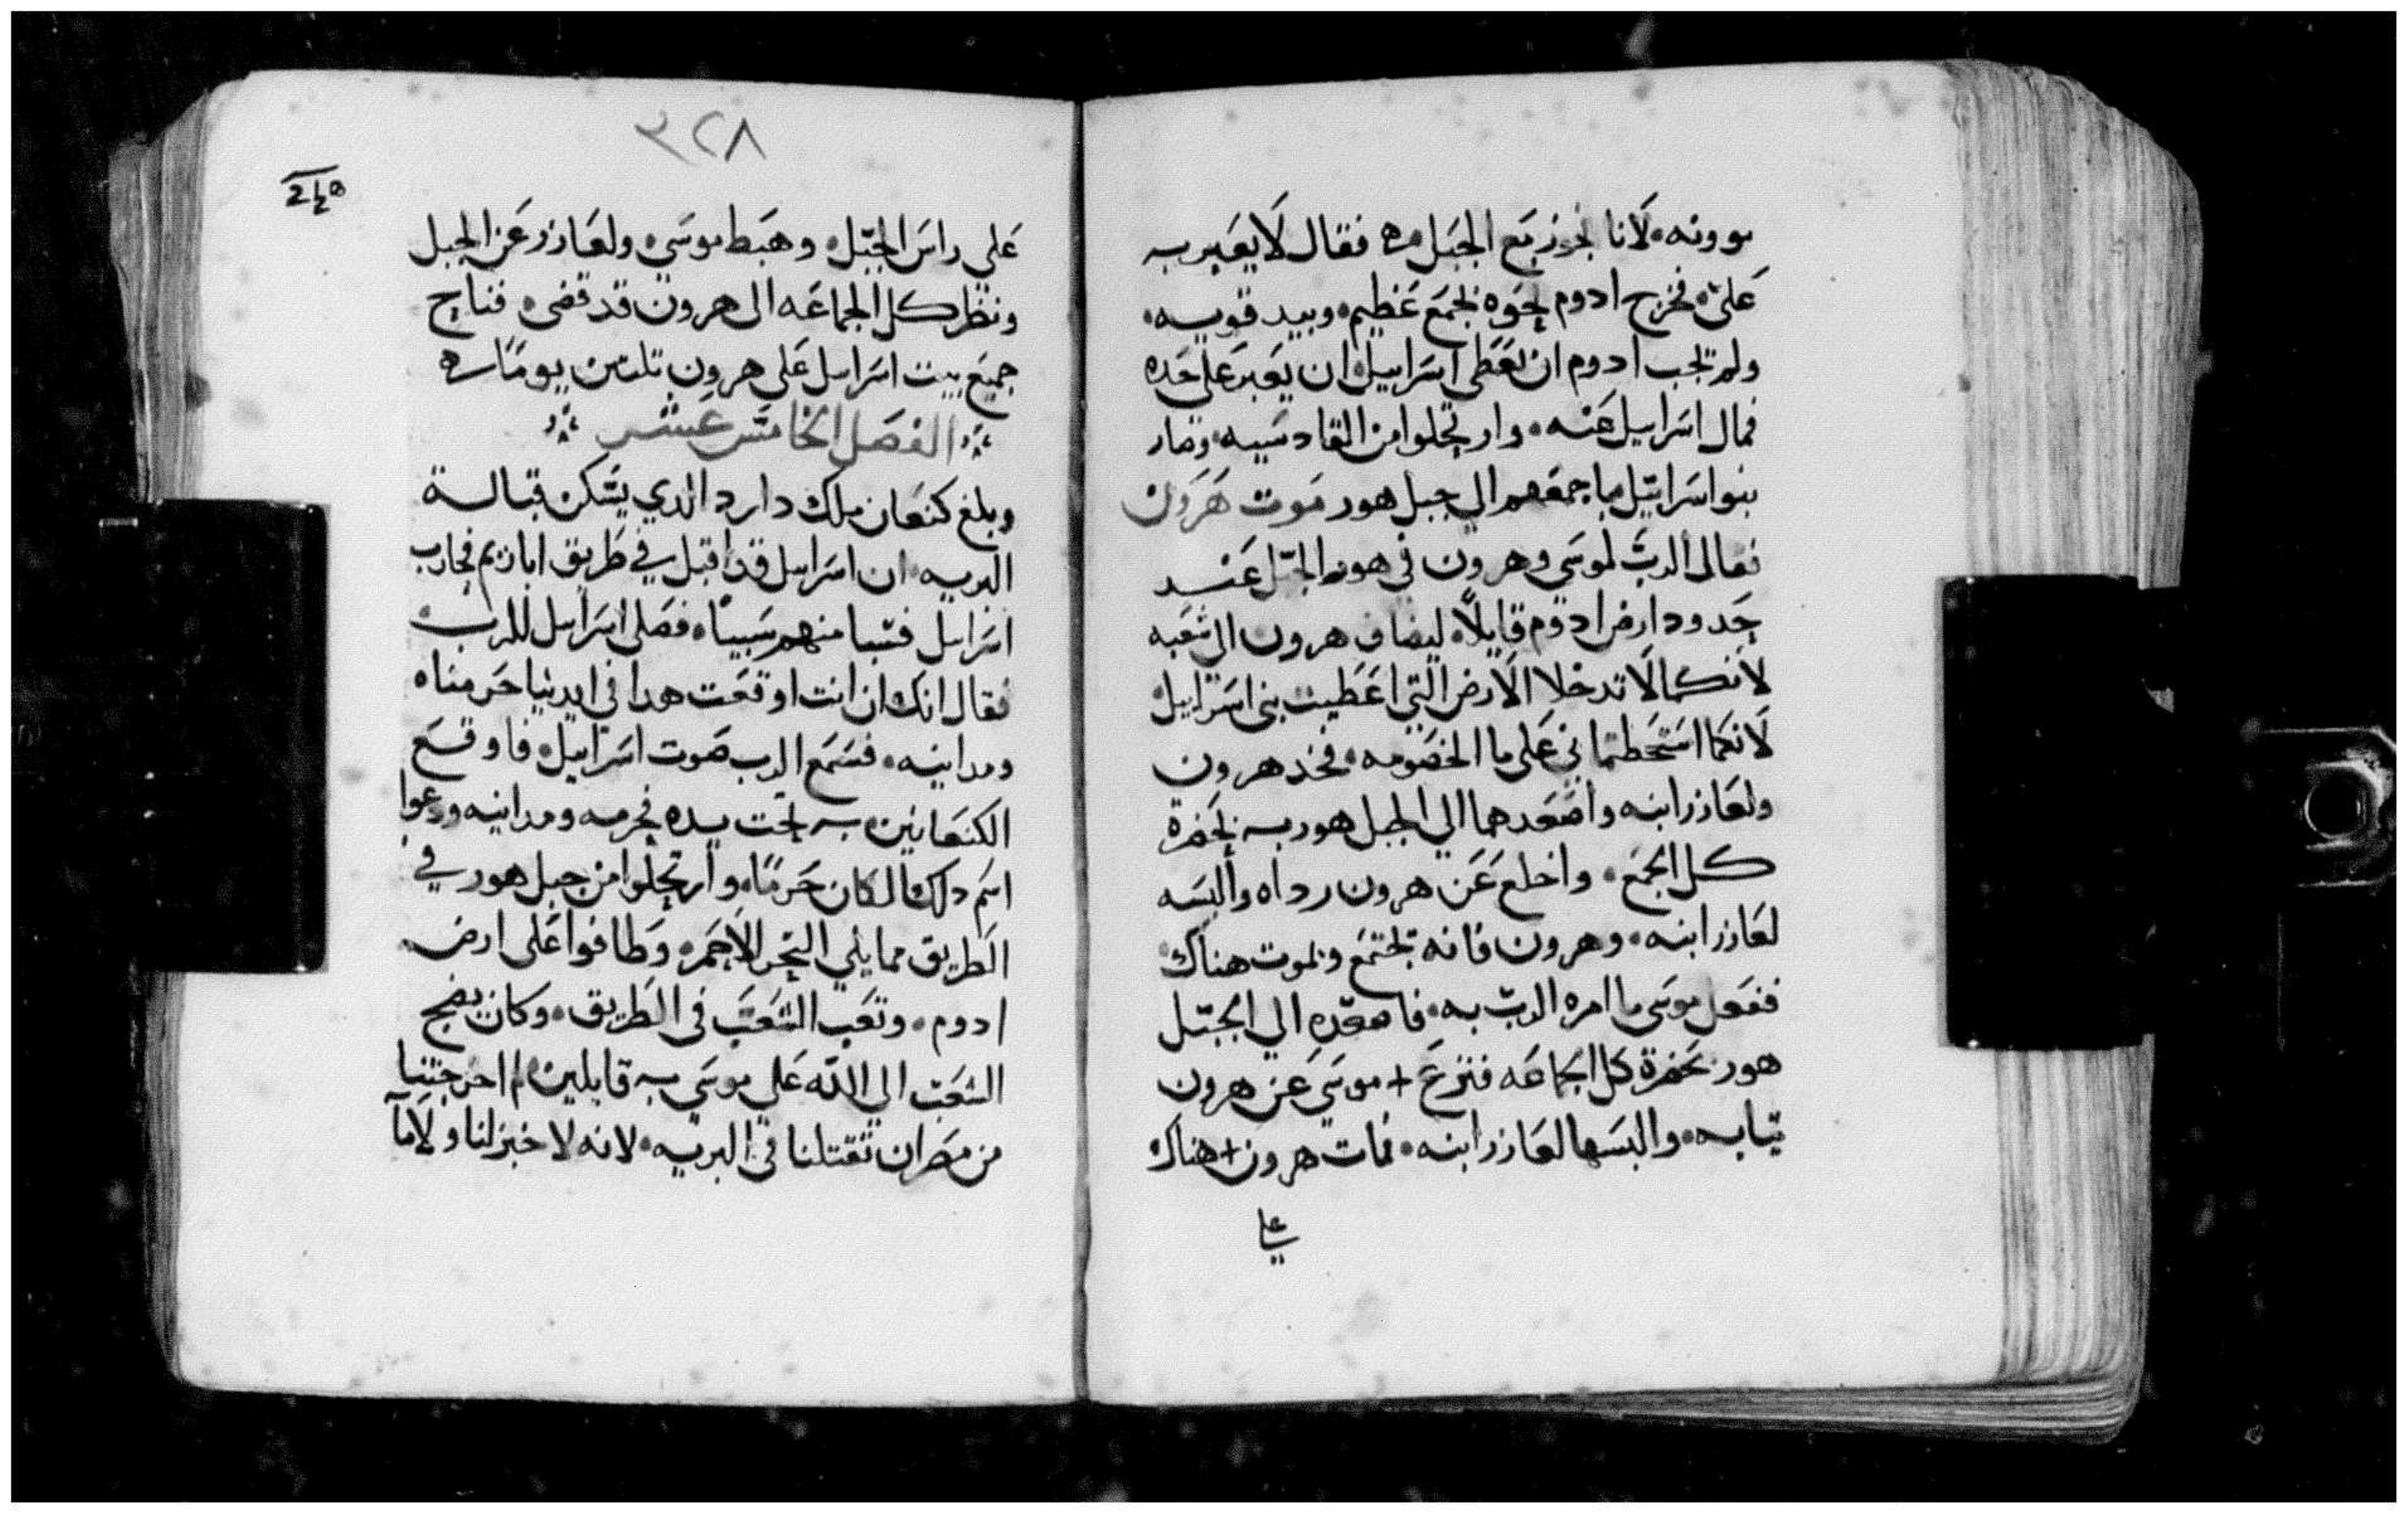 موونه، لانا نجوز مع الجبل مره فقال لا يعبر به
علي، فخرج ادوم نحوه بجمع عظيم، وبيد قويه،
ولم تجب ادوم ان تعطى اسراييل، ان يعبر على حده
فمال اسراييل عنه، وارتحلوا من القادسيه، وصار
بنو اسراييل باجمعهم الي جبل هور موت هرون
فقال الرب لموسي وهرون في هور الجبل عند
حدود ارض ادوم قايلاً، ليضاف هرون الى شعبه
لانكما لا تدخلا الارض التي اعطيت بني اسراييل
لانكما اسخطتماني على ما الخصومه، فخذ هرون
ولعازر ابنه واصعدهما الي الجبل هور به بحضرة
كل الجمع، واخلع عن هرون رداه والبسه
لعازر ابنه، وهرون فانه يجتمع ويموت هناك
ففعل موسى ما امره الرب به، فاصعده الي الجبل
هور بحضرة كل الجماعه فنزع + موسي عن هرون
تيابه، والبسها لعازر ابنه، فمات هرون + هناك
علي
٣٢٨
علي راس الجبل، وهبط موسي، ولعازر عن الجبل
ونظر كل الجماعه ان هرون قد قضى، فناح
جميع بيت اسراييل على هرون تلتين يومًا
الفصل الخامس عشر
وبلغ كنعان ملك دارد الدي يسكن قبالة
البريه، ان اسراييل قد اقبل في طريق اباريم فحارب
اسراييل فسبا منهم سبيًا، فصلى اسراييل للرب
فقال انك ان انت اوقعت هدا في ايدينا حرمناه
ومداينه، فسمع الرب صوت اسراييل، فاوقع
الكنعانيين به تحت يده فحرمه ومداينه ودعوا
اسم دلك المكان حرمًا، وارتحلوا من جبل هور في
الطريق مما يلي البحر الاحمر، وطافوا على ارض
ادوم، وتعب الشعب في الطريق، وكان يضج
الشعب الي الله على موسي به قايلين، لم اخرجتنا
من مصر ان تقتلنا في البريه، لانه لا خبز لنا ولا ما